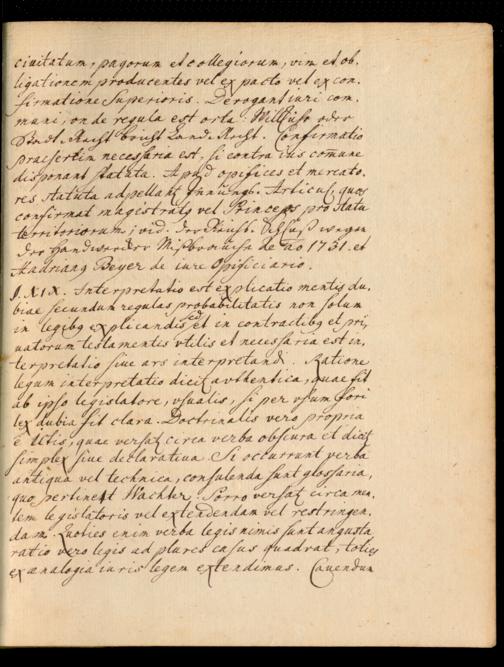 civitatum, pagorum et collegiorum, vim et ob-
ligationem producentes vel ex pacto vel ex con-
firmatione Superioris. Derogant iuri com-
muni, onde regula est orta: Willkühr oder
Stadt Recht bricht Land Recht. Confirmatio
praesertim necessaria est, si contra ius com̃une
disponant statuta. Apud opifices et mercato-
res statuta adpellant Innungs-Articul, quos
confirmat magistratus vel Princeps pro statu
territoriorum; vid. der Reichs-Schluß wegen
der Handwercker Mißbräuche de ao 1731. et
Hadriang Beyer de iure Opificiario.
§. XIX. Interpretatio est explicatio mentis du-
biae secundum regulas probabilitatis non solum
in legibg explicandis sed et in contractibg et pri-
vatorum testamentis utilis et necessaria est in-
terpretatio sive ars interpretandi. Ratione
legum interpretatio dicit authentica, quae fit
ab ipso legislatore, usualis, si per usum fori
lex dubia fit clara. Doctrinalis vero propria
e Ictis, quae versat circa verba obscura et dicit
simplex sive declarativa. Si occurrunt verba
antiqua vel technica, consulenda sunt glossaria,
quo pertinent Wachter. Porro versat circa men-
tem legislatoris vel extendendam vel restringen-
dam. Quoties enim verba legis nimis sunt angusta
ratio vero legis ad plures casus quadrat, toties
ex analogia iuris legem extendimus. Cavendum